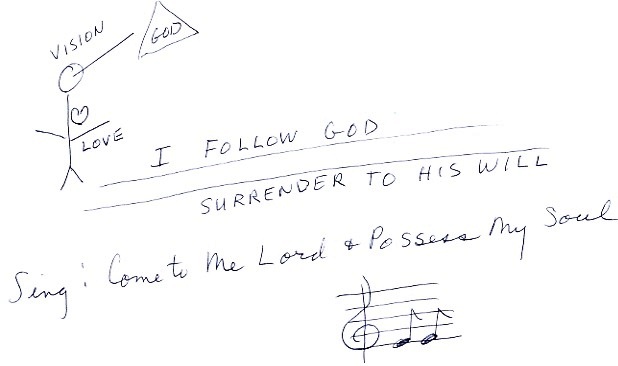 VISION
GOD
LOVE
I FOLLOW GOD
SURRENDER TO HIS WILL
Sing: Come to Me Lord & Possess My Soul